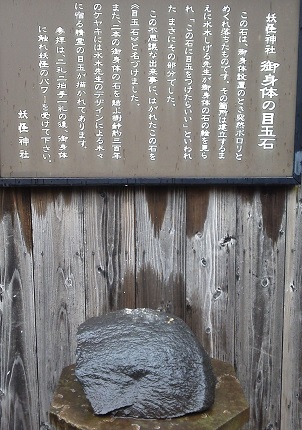 妖怪神社 御身体の目玉石
この石は、御身体設置のとき突然ポロリと
めくれ落ちたものです。その箇所は建立するま
えに水木しげる先生が御身体の石の絵を見ら
れ、「この石に目玉をつけたらいい」といわれ
た、まさにその部分でした。
この不思議な出来事に、はがれたこの石を
《目玉石》と名づけました。
また、二本の御身体の石を結ぶ樹齢約三百年
のケヤキには水木先生のデザインによる木々
に宿る精霊の目玉が描かれてあります。
参拝は、「二礼二拍手一礼」の後、御身体
に触れ妖怪のパワーを受けて下さい。
妖怪神社